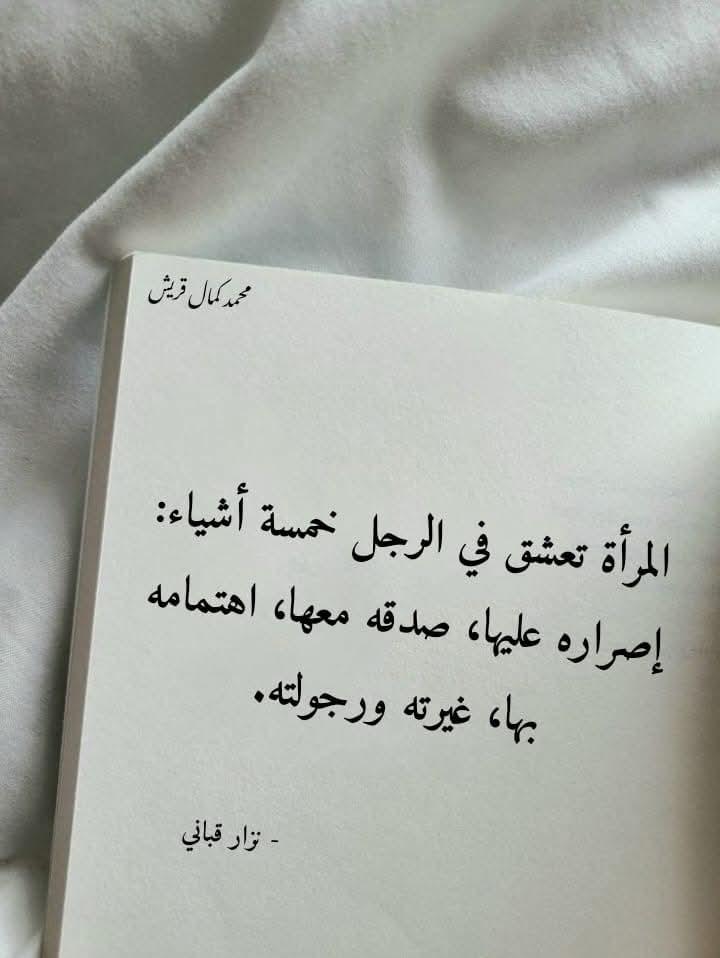 محمد كمال قريش
المرأة تعشق في الرجل خمسة أشياء:
إصراره عليها، صدقه معها، اهتمامه
بها، غيرته ورجولته.
- نزار قباني